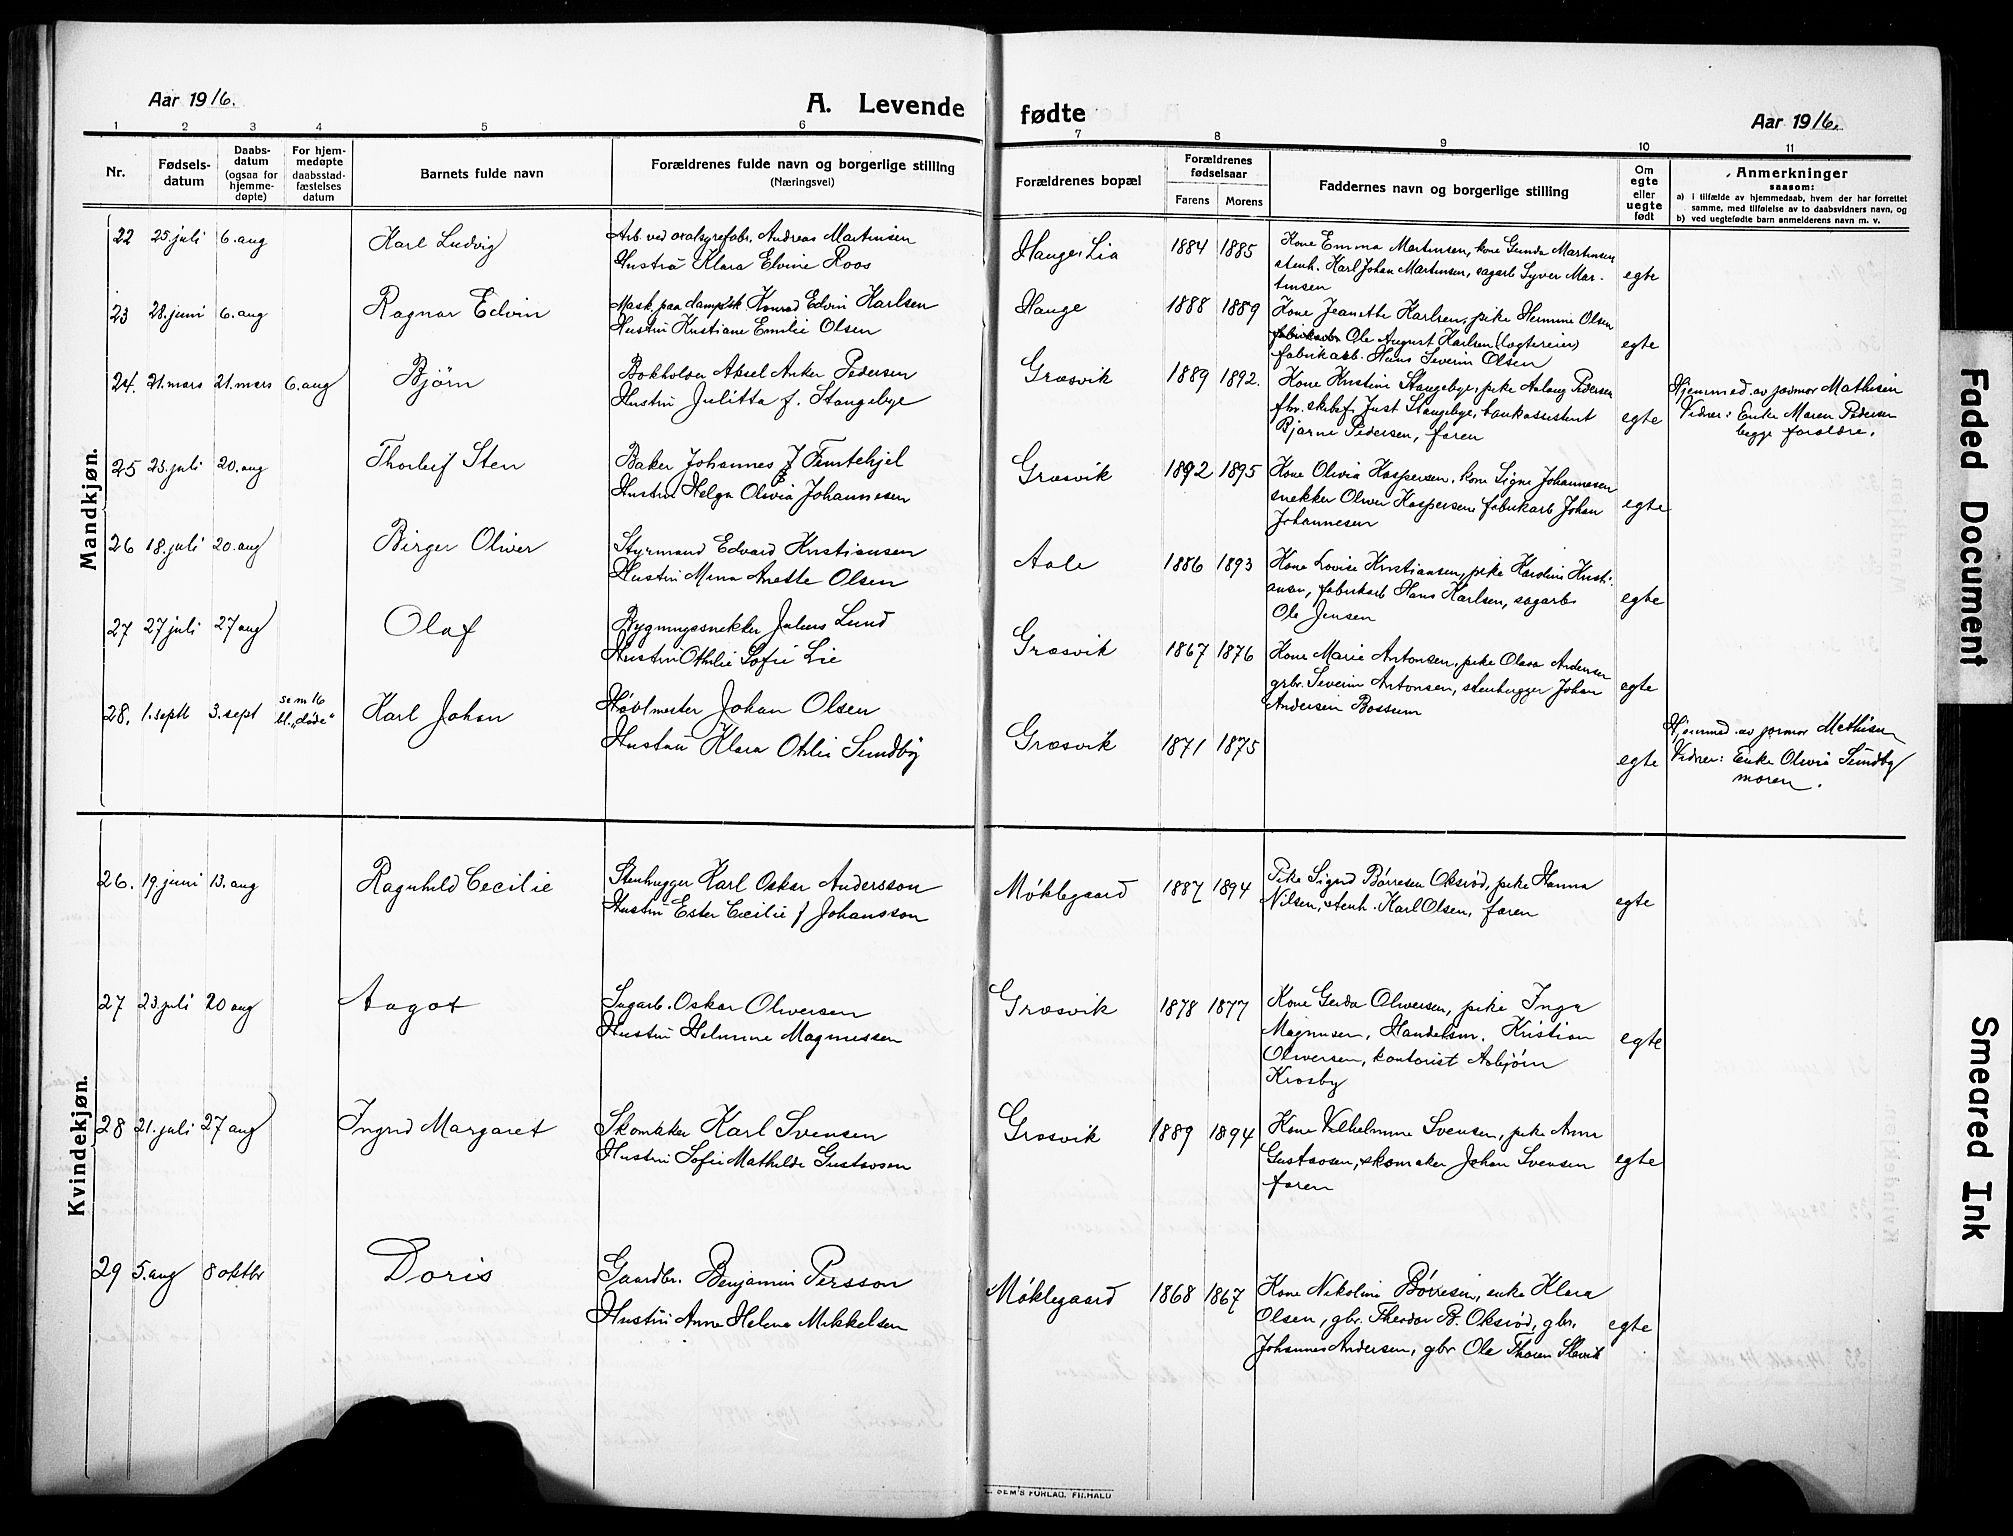 Aar 1916.
A. Levende
fødte
Aar 1916.
1 2 3 4 5 6 7 8 9 10 11
Nr.
Fødsels-
datum
Daabs-
datum
(ogsaa for
hjemme-
døpte)
For hjem-
medøpte
daabsstad-
fæstelses
datum
Barnets fulde navn
Forældrenes fulde navn og borgerlige stilling
(Næringsvei)
Forældrenes bopæl
Forældrenes
fødselsaar
Farens Morens
Faddernes navn og borgerlige stilling
Om
egte
eller
uegte
født
Anmerkninger
saasom:
a) i tilfælde av hjemmedaab, hvem der har forrettet
samme, med tilføielse av to daabsvidners navn, og
b) ved uegtefødte barn anmelderens navn m. v.
Mandkjøn.
22 25. juli 6. aug Karl Ludvig
Arb. ved oxalsyrefabr. Andreas Martinsen
Hustru Klara Elvine Roos
Hauge, Lia 1884 1885
Kone Emma Martinsen, kone Gunda Martinsen
stenh. Karl Johan Martinsen, sagarb Syver Mar-
tinsen
egte
23 28. juni 6. aug Ragnar Edvin
Mask. paa dampsk Konrad Edvin Karlsen
Hustru Kristiane Emilie Olsen
Hauge 1888 1889
Kone Jeanette Karlsen, pike Hermine Olsen
Ole August Karlsen (logtereier)
fabrikarb. Hans Severin Olsen
egte
24. 21. mars 21. mars 6. aug Bjørn
Bokholder Aksel Anker Pedersen
Hustru Julitta f. Stangebye
Græsvik 1889 1892.
Kone Kristine Stangebye, pike Aslaug Pedersen
fhv. skibsf. Just Stangebye, bankassistent
Bjarne Pedersen, faren
egte
Hjemmed. av jormor Mathisen
Vidner: Enke Maren Pedersen
begge forældre.
25 23. juli 20. aug Thorleif Sten
Baker Johannes J Fintehjel
Hustru Helga Olivia Johannesen
Græsvik 1892 1895
Kone Olivia Kaspersen, kone Signe Johannesen
snekker Oliver Kaspersen, fabrikarb Johan
Johannesen
egte
26 18. juli 20. aug Birger Oliver
Styrmand Edvard Kristiansen
Hustru Mina Anette Olsen
Aale 1886 1893
Kone Lovise Kristiansen, pike Karoline Kristi-
ansen, fabrikarb Hans Karlsen, sagarb
Ole Jensen
egte
27 27 juli 27 aug Olaf
Bygningssnekker Julius Lund
Hustru Othilie Sofie Lie
Græsvik 1867 1876
Kone Marie Antonsen, pike Olava Andersen
grbr. Severin Antonsen, stenhugger Johan
Andersen Bossum
egte
28. 1. septb 3. sept se nr 16
bl. "døde" Karl Johan
Høvlmester Johan Olsen
Hustru Klara Otilie Sundby
Græsvik 1871 1875
egte
Hjemmed. av jormor Mathisen
Vidner: Enke Olivia Sundby
moren.
Kvindekjøn.
26. 19. juni 13. aug Ragnhild Cecilie
Stenhugger Karl Oskar Andersson
Hustru Ester Cecilie f Johansson
Møklegaard 1887 1894
Pike Signd Børresen Oksrød, pike Hanna
Nilsen, stenh. Karl Olsen, faren
egte
27 23. juli 20 aug Aagot
Sagarb. Oskar Oliversen
Hustru Helmine Magnussen
Græsvik 1878 1877
Kone Gerda Oliversen, pike Inga
Magnusen, Handelsm. Kristian
Oliversen, kontorist Asbjørn
Krosby
egte
28 21. juli 27 aug Ingrid Margaret
Skomaker Karl Svensen
Hustru Sofie Mathilde Gustavsen
Græsvik 1889 1894
Kone Vilhelmine Svensen, pike Anna
Gustavsen, skomaker Johan Svensen
faren
egte
29 5. aug 8 oktbr Doris
Gaardbr. Benjamin Persson
Hustru Anne Helena Mikkelsen
Møklegaard 1868 1867
Kone Nikoline Børresen, enke Klara
Olsen, gbr. Theodor B. Oksrød, gbr.
Johannes Andersen, gbr Ole Thoren Slevik
egte
SEM'S FORLAG, FR.HALD
Faded Document
Smeared Ink